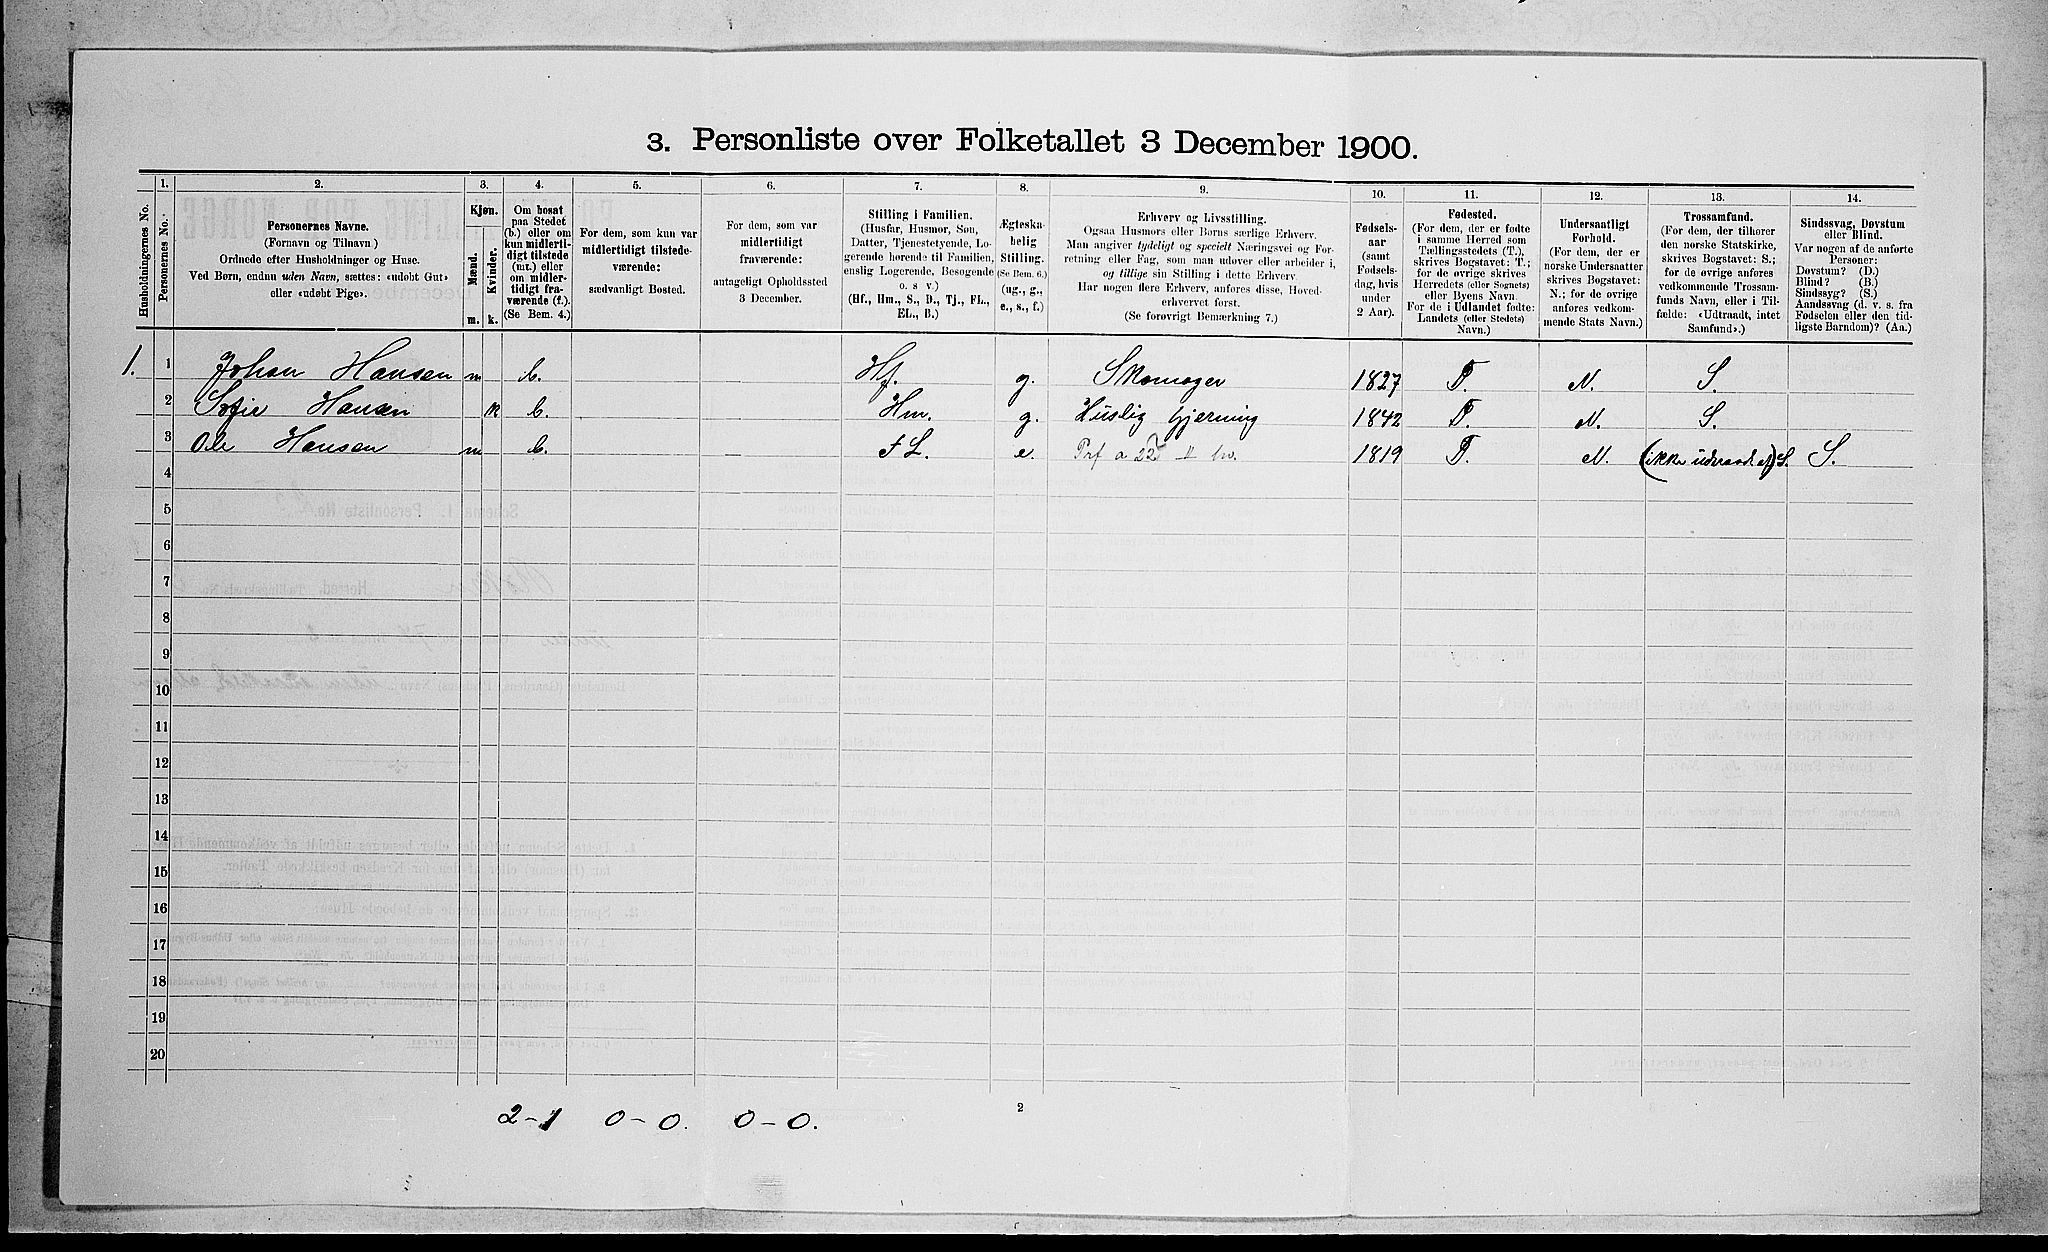 3. Personliste over Folketallet 3 December 1900.
1. 2. 3. 4. 5. 6. 7. 8. 9. 10. 11. 12. 13. 14.
Husholdningernes No.
Personernes No.
Personernes Navne.
(Fornavn og Tilnavn.)
Ordnede efter Husholdninger og Huse.
Ved Børn, endnu uden Navn, sættes: «udøbt Gut»
eller «udøbt Pige».
Kjøn.
Mænd.
Kvinder.
m. k.
Om bosat
paa Stedet
(b.) eller om
kun midlerti-
digt tilstede
(mt.) eller
om midler-
tidigt fra-
værende (f.).
(Se Bem. 4.)
For dem, som kun var
midlertidigt tilstede-
værende:
sædvanligt Bosted.
For dem, som var
midlertidigt
fraværende:
antageligt Opholdssted
3 December.
Stilling i Familien.
(Husfar, Husmor, Søn,
Datter, Tjenestetyende, Lo-
gerende hørende til Familien,
enslig Logerende, Besøgende
o. s v.)
(Hf., Hm., S., D., Tj., FL.,
EL., B.)
Ægteska-
belig
Stilling.
(Se Bem. 6.)
(ug., g.,
e., s., f.)
Erhverv og Livsstilling.
Ogsaa Husmors eller Børns særlige Erhverv.
Man angiver tydeligt og specielt Næringsvei og For-
retning eller Fag, som man udøver eller arbeider i,
og tillige sin Stilling i dette Erhverv.
Har nogen flere Erhverv, anføres disse, Hoved-
erhvervet først.
(Se forøvrigt Bemærkning 7.)
Fødsels-
aar
(samt
Fødsels-
dag, hvis
under
2 Aar).
Fødested.
(For dem, der er fødte
i samme Herred som
Tællingsstedets (T.),
skrives Bogstavet: T.;
for de øvrige skrives
Herredets (eller Sognets)
eller Byens Navn.
For de i Udlandet fødte:
Landets (eller Stedets)
Navn.)
Undersaatligt
Forhold.
(For dem, der er
norske Undersaatter
skrives Bogstavet:
N.; for de øvrige
anføres vedkom-
mende Stats Navn.)
Trossamfund.
(For dem, der tilhører
den norske Statskirke,
skrives Bogstavet: S.;
for de øvrige anføres
vedkommende Trossam-
funds Navn, eller i Til-
fælde: «Udtraadt, intet
Samfund».)
Sindssvag, Døvstum
eller Blind.
Var nogen af de anførte
Personer:
Døvstum? (D.)
Blind? (B.)
Sindssyg? (S.)
Aandssvag (d. v. s. fra
Fødselen eller den tid-
ligste Barndom)? (Aa.)
1. 1 Johan Hansen m b. Hf. g. Skomager 1827 T. N. S.
2 Sofie Hansen k b. Hm. g. Huslig Gjerning 1842 T. N. S.
3 Ole Hansen m b. FL. e. 1819 T. N. (ikke udtraadt af) S. S.
4
5
6
7
8
9
10
11
12
13
14
15
16
17
18
19
20
2
2-1 0-0. 0-0.